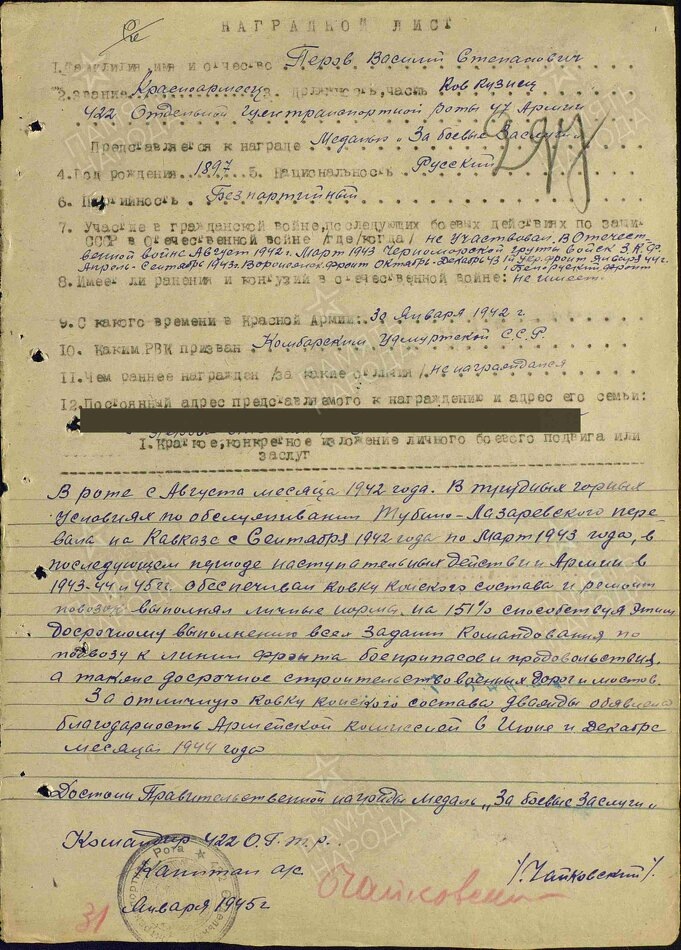 НАГРАДНОЙ ЛИСТ
1. Фамилия, имя и отчество Перов Василий Степанович
2. Звание Красноармеец. Должность, часть Ков Кузнец
422 Отдельной Гужтранспортной роты 47 Армии
Представляется к награде Медалью „За боевые Заслуги"
4. Год рождения 1897 5. Национальность Русский
6. Партийность Беспартийный
7. Участие в гражданской войне, последующих боевых действиях по защи
СССР в отечественной войне /где/когда/ не Участвовал. В Отечест-
венной войне Август 1942 г. Март 1943 Черноморской групы войск З.К.Ф.
Апрель-Сентябрь 1943 г. Воронежск. Фронт Октябрь-Декабрь 43 1й Укр. Фронт Январь 44 г.
1 Белорусский Фронт
8. Имеет ли ранения и контузий в отечественной войне: не имеет.
9. С какого времени в Красной Армии: 30 Января 1942 г.
10. Каким РВК призван Камбарским Удмуртской С.С.Р.
11. Чем раннее награжден /за какие отличия/ не награждался
12. Постоянный адрес представляемого к награждению и адрес его семьи:
I. Краткое, конкретное изложение личного боевого подвига или
заслуг
В роте с Августа месяца 1942 года. В трудных горных
условиях по обслуживании Тубино-Лазаревского пере
вала на Кавказе с Сентября 1942 года по Март 1943 года, в
последующем периоде наступательных действий Армии в
1943-44 и 45 г.г. обеспечивал ковку конского состава и ремонт
повозок выполнял личные норма на 151% способствуя этим
Досрочному выполнению всех Задании Командования по
подвозу к линии фронта боеприпасов и продовольствия,
а также досрочное строительство военных дорог и мостов.
За отличную ковку конского состава дважды обявлена
благодарность Армейской комиссией в Июне и Декабре
месяцах 1944 года
Достоин Правительственной награды медаль „За боевые Заслуги"
Командир 422 О.Г.т.р.
Капитан а/с /Чайковский/.
Чайковский
Января 1945 г
31
Рота
ПАМЯТЬ НАРОДА